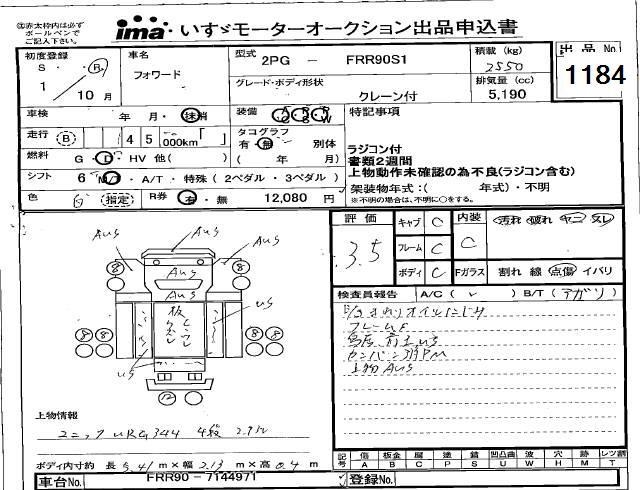 ㊟赤太枠内は必ず
ボールペンで
ご記入下さい。
ima いすゞモーターオークション出品申込書
初度登録
S ・ R
1 / 10 月
車名
フォワード
型式 2PG － FRR90S1
グレード・ボディ形状
クレーン付
積載 (kg)
2550
排気量 (cc)
5,190
出品 No
1184
車検 年 月・抹消
装備 A C P S P W
特記事項
走行 (B) 4 5 000km「 」
タコグラフ 有・無 別体
( 年 月)
燃料 G・D・HV 他( )
シフト 6 M/T・A/T・特殊 (2ペダル・3ペダル)
色 (指定) R券 有・無 12,080 円
ラジコン付
書類2週間
上物動作未確認の為不良(ラジコン含む)
架装物年式:( 年式)・不明
※不明の場合は、不明に○をする。
評価 3.5
キャブ C
フレーム C
ボディ C
内装 C
汚れ 破れ ヤニ スレ
Fガラス 割れ 線 点傷 イバリ
検査員報告 A/C ( レ ) B/T (アガリ)
AUS AUS AUS
AUS
AUS
US
US
8 8 8 8 8 8
12
フレームE
上物AUS
上物情報
ユニック URG344 4段 2.9t
ボディ内寸約 長 5.41 m × 幅 2.13 m × 高 0.4 m
記号 傷 A 板金 B 腐 C 塗 P 錆 S 凹凸曲 U 波 W 穴 H 跡 M レンズ割 T
車台No. FRR90 - 7144971
登録No.